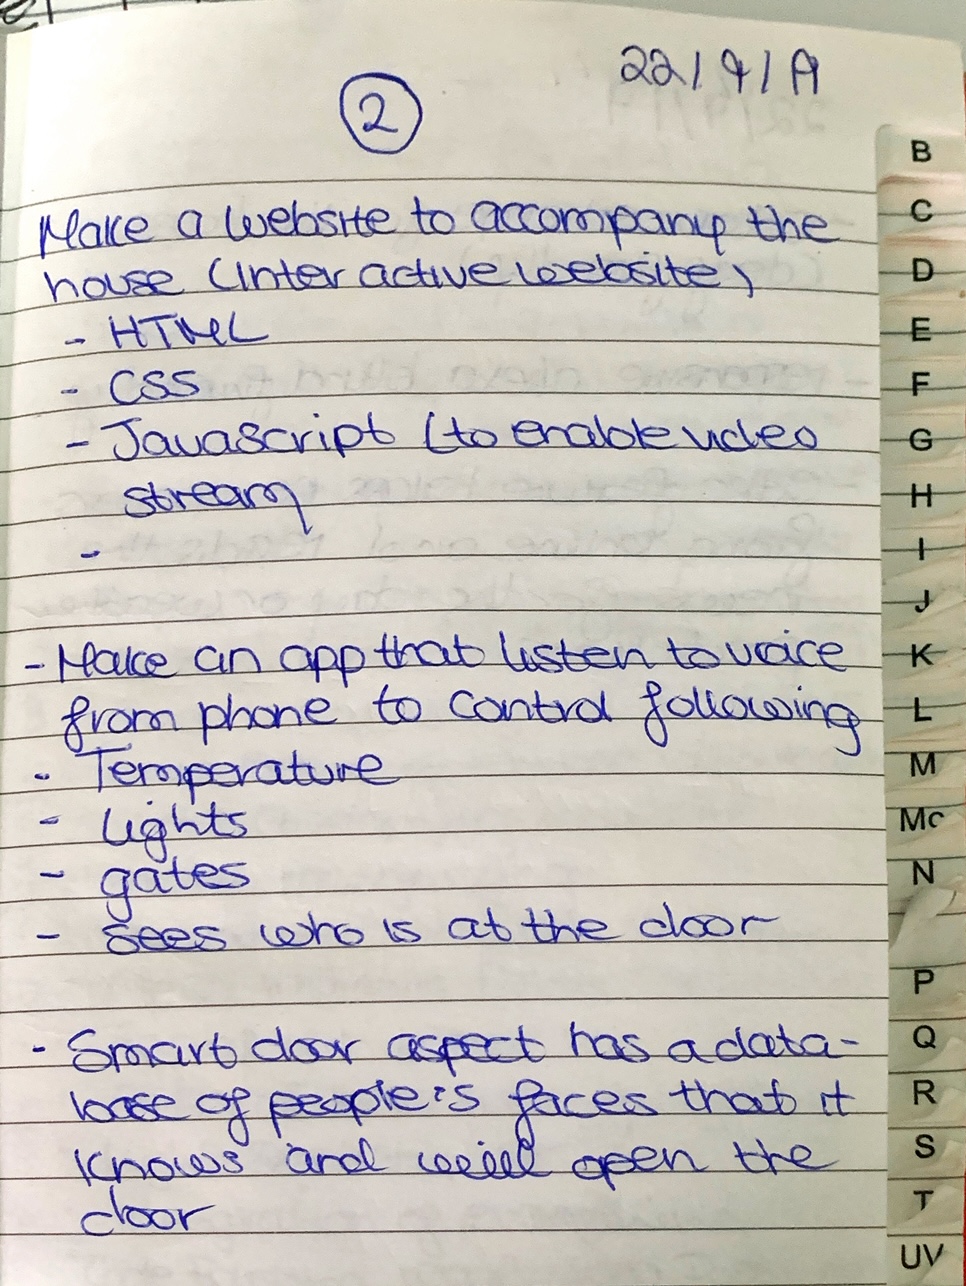 22/9/19
2
Make a website to accompany the
house (inter active website)
- HTML
- CSS
- Javascript (to enable video
stream
-
- Make an app that listen to voice
from phone to control following
- Temperature
- Lights
- gates
- sees who is at the door
- Smart door aspect has a data-
base of people's faces that it
knows and will open the
door
B
C
D
E
F
G
H
I
J
K
L
M
Mc
N
P
Q
R
S
T
UV